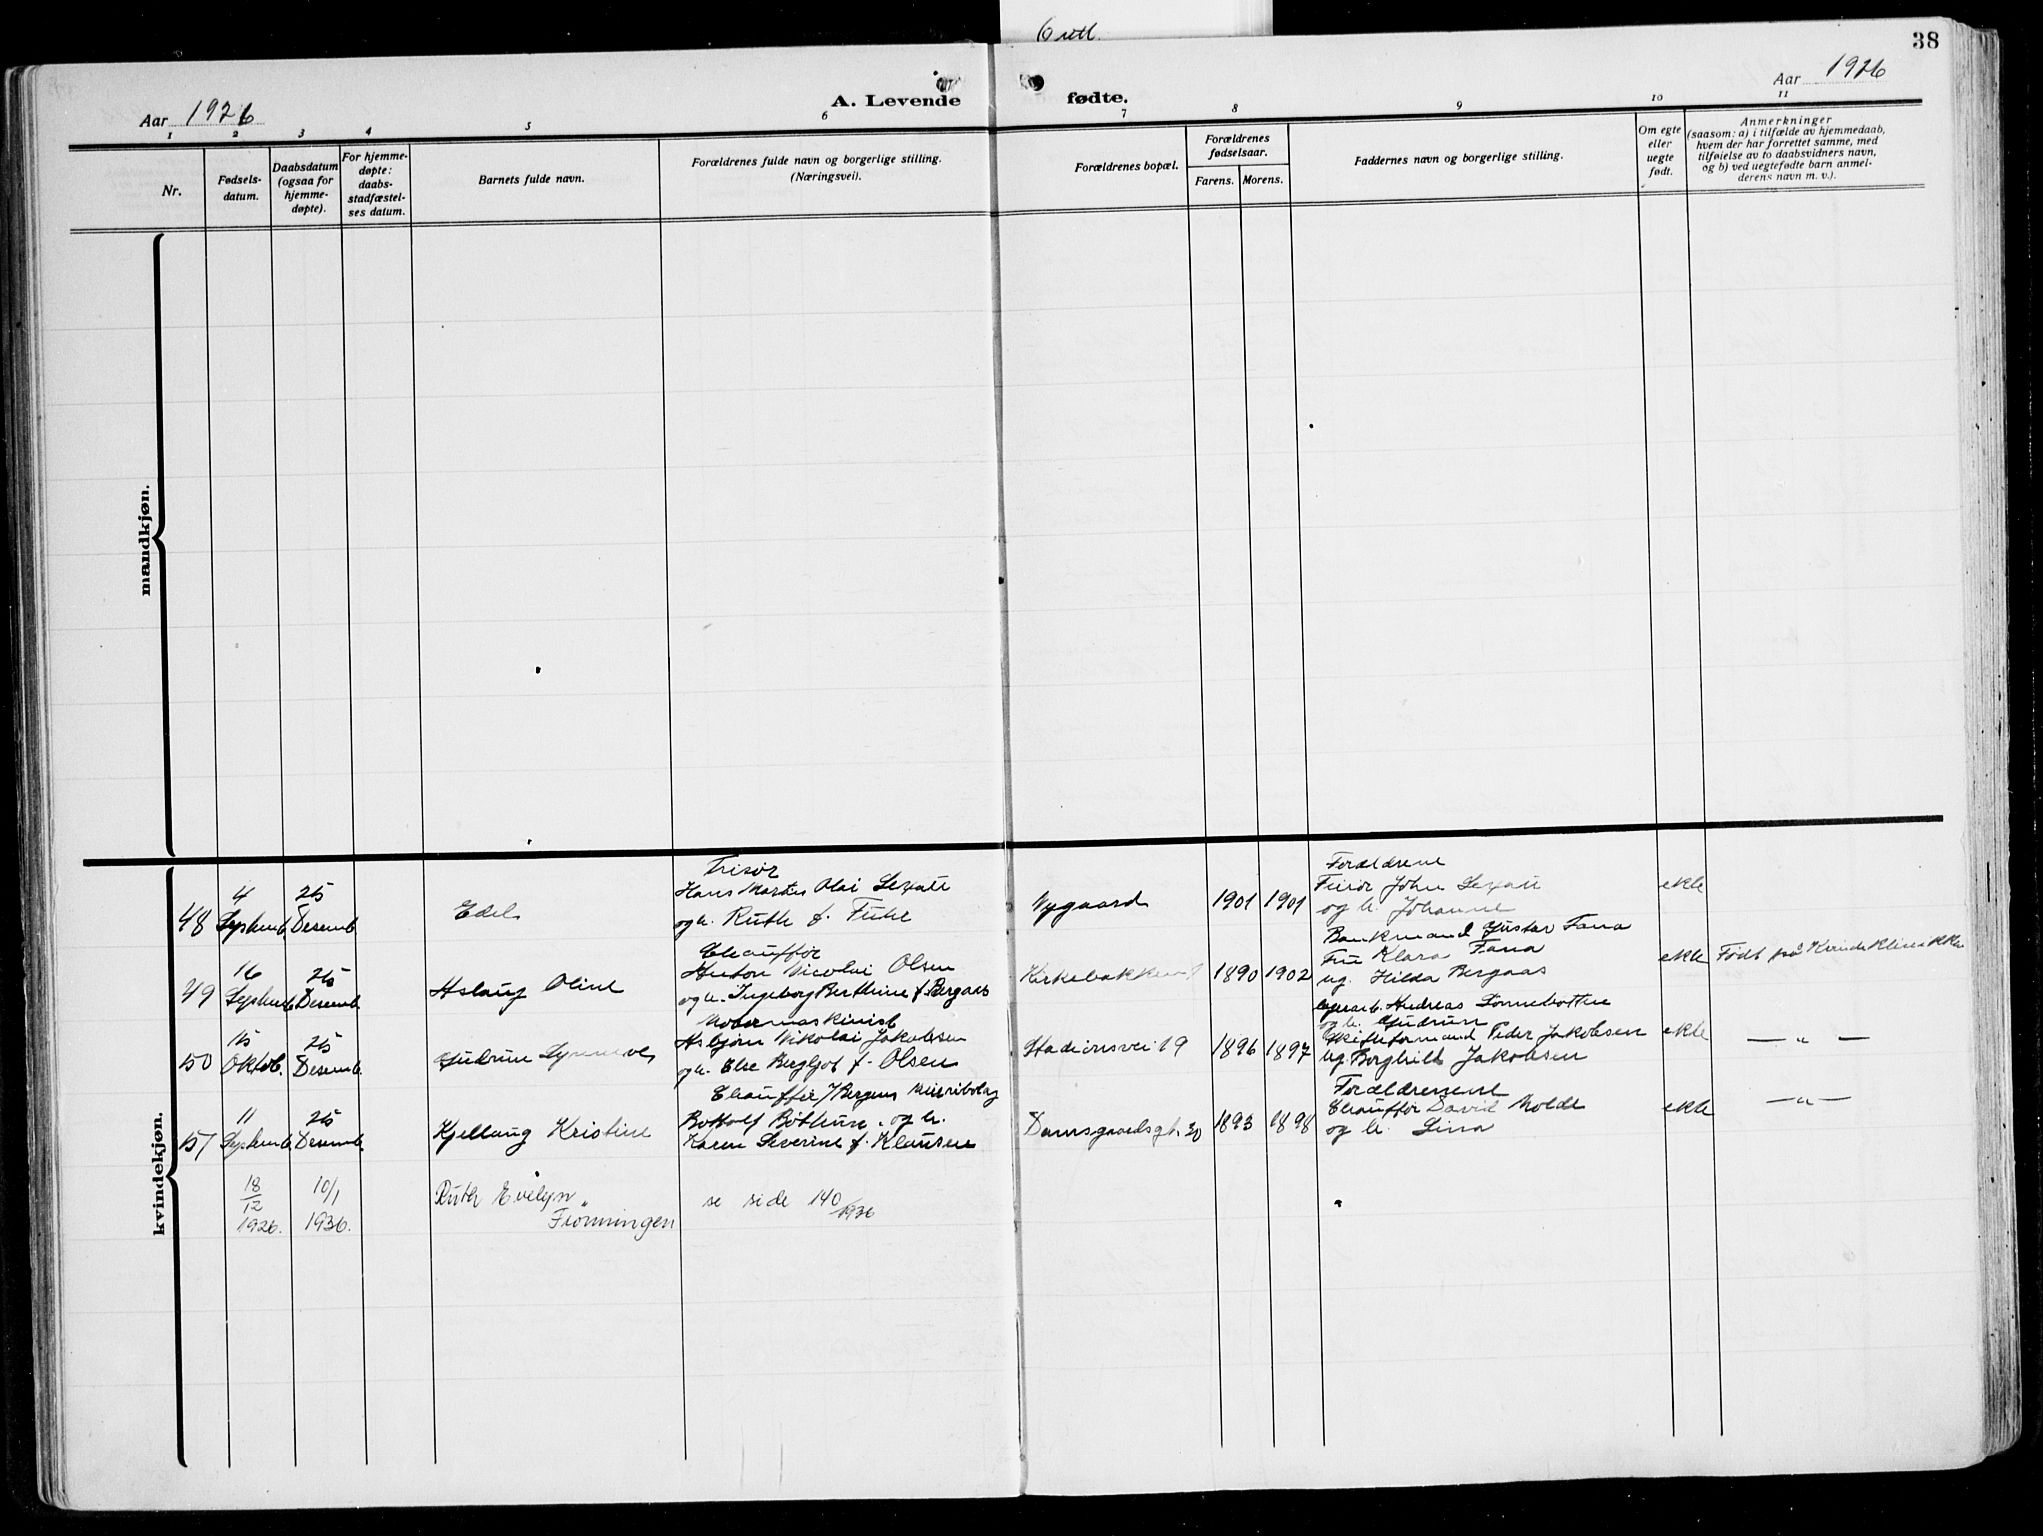 6 utl.
38
Aar 1926
A. Levende
fødte.
Aar 1926
1 2 3 4 5 6 7 8 9 10 11
Nr.
Fødsels-
datum.
Daabsdatum
(ogsaa for
hjemme-
døpte).
For hjemme-
døpte:
daabs-
stadfæstel-
ses datum.
Barnets fulde navn.
Forældrenes fulde navn og borgerlige stilling.
(Næringsvei).
Forældrenes bopæl.
Forældrenes
fødselsaar.
Farens. Morens.
Faddernes navn og borgerlige stilling.
Om egte
eller
uegte
født.
Anmerkninger
(saasom: a) i tilfælde av hjemmedaab,
hvem der har forrettet samme, med
tilføielse av to daabsvidners navn,
og b) ved uegtefødte barn anmel-
derens navn m. v.).
mandkjøn.
kvindekjøn.
48
4
Septemb.
25
Desemb.
Edel
Frisør
Hans Martes Olai Sexau
og h. Ruth f.
Nygaard
1901 1901
Forældrene
Frisør John Sexau
og h. Johanne
Bankmand Gustav Fana
Fru Klara Fana
ekte
49
16
Septemb.
25
Desemb.
Aslaug Oline
Chauffør
Anton Nicolai Olsen
og h. Ingeborg Berthine f. Bergaas
Kirkebakken
1890 1902
ug. Hilda Bergaas
lagerarb. Andreas Sonnebottne
og h. Gudrun
ekte
Født på Kvindeklinikken
50
15
Oktob.
25
Desemb.
Gudrun Synnøve
Motormaskinist
Asbjørn Nikolai Jakobsen
og h. Else Bergljot f. Olsen
Stadionsvei 19
1896 1897
Skifteformand Peder Jakobsen
ug. Borghild Jakobsen
Forældrene
ekte
— " —
51
11
Septemb.
25
Desemb.
Kjellaug Kristine
Chauffør i Bergens Meieribolag
Bottolf Bøthun og h.
Karen Severine f. Klausen
Damsgaardsgt. 30
1893 1898
Chauffør David Molde
og h. Lina
ekte
— " —
18
12
1926.
10/1
1936.
Ruth Evelyn
Frønningen
se side 140
1936